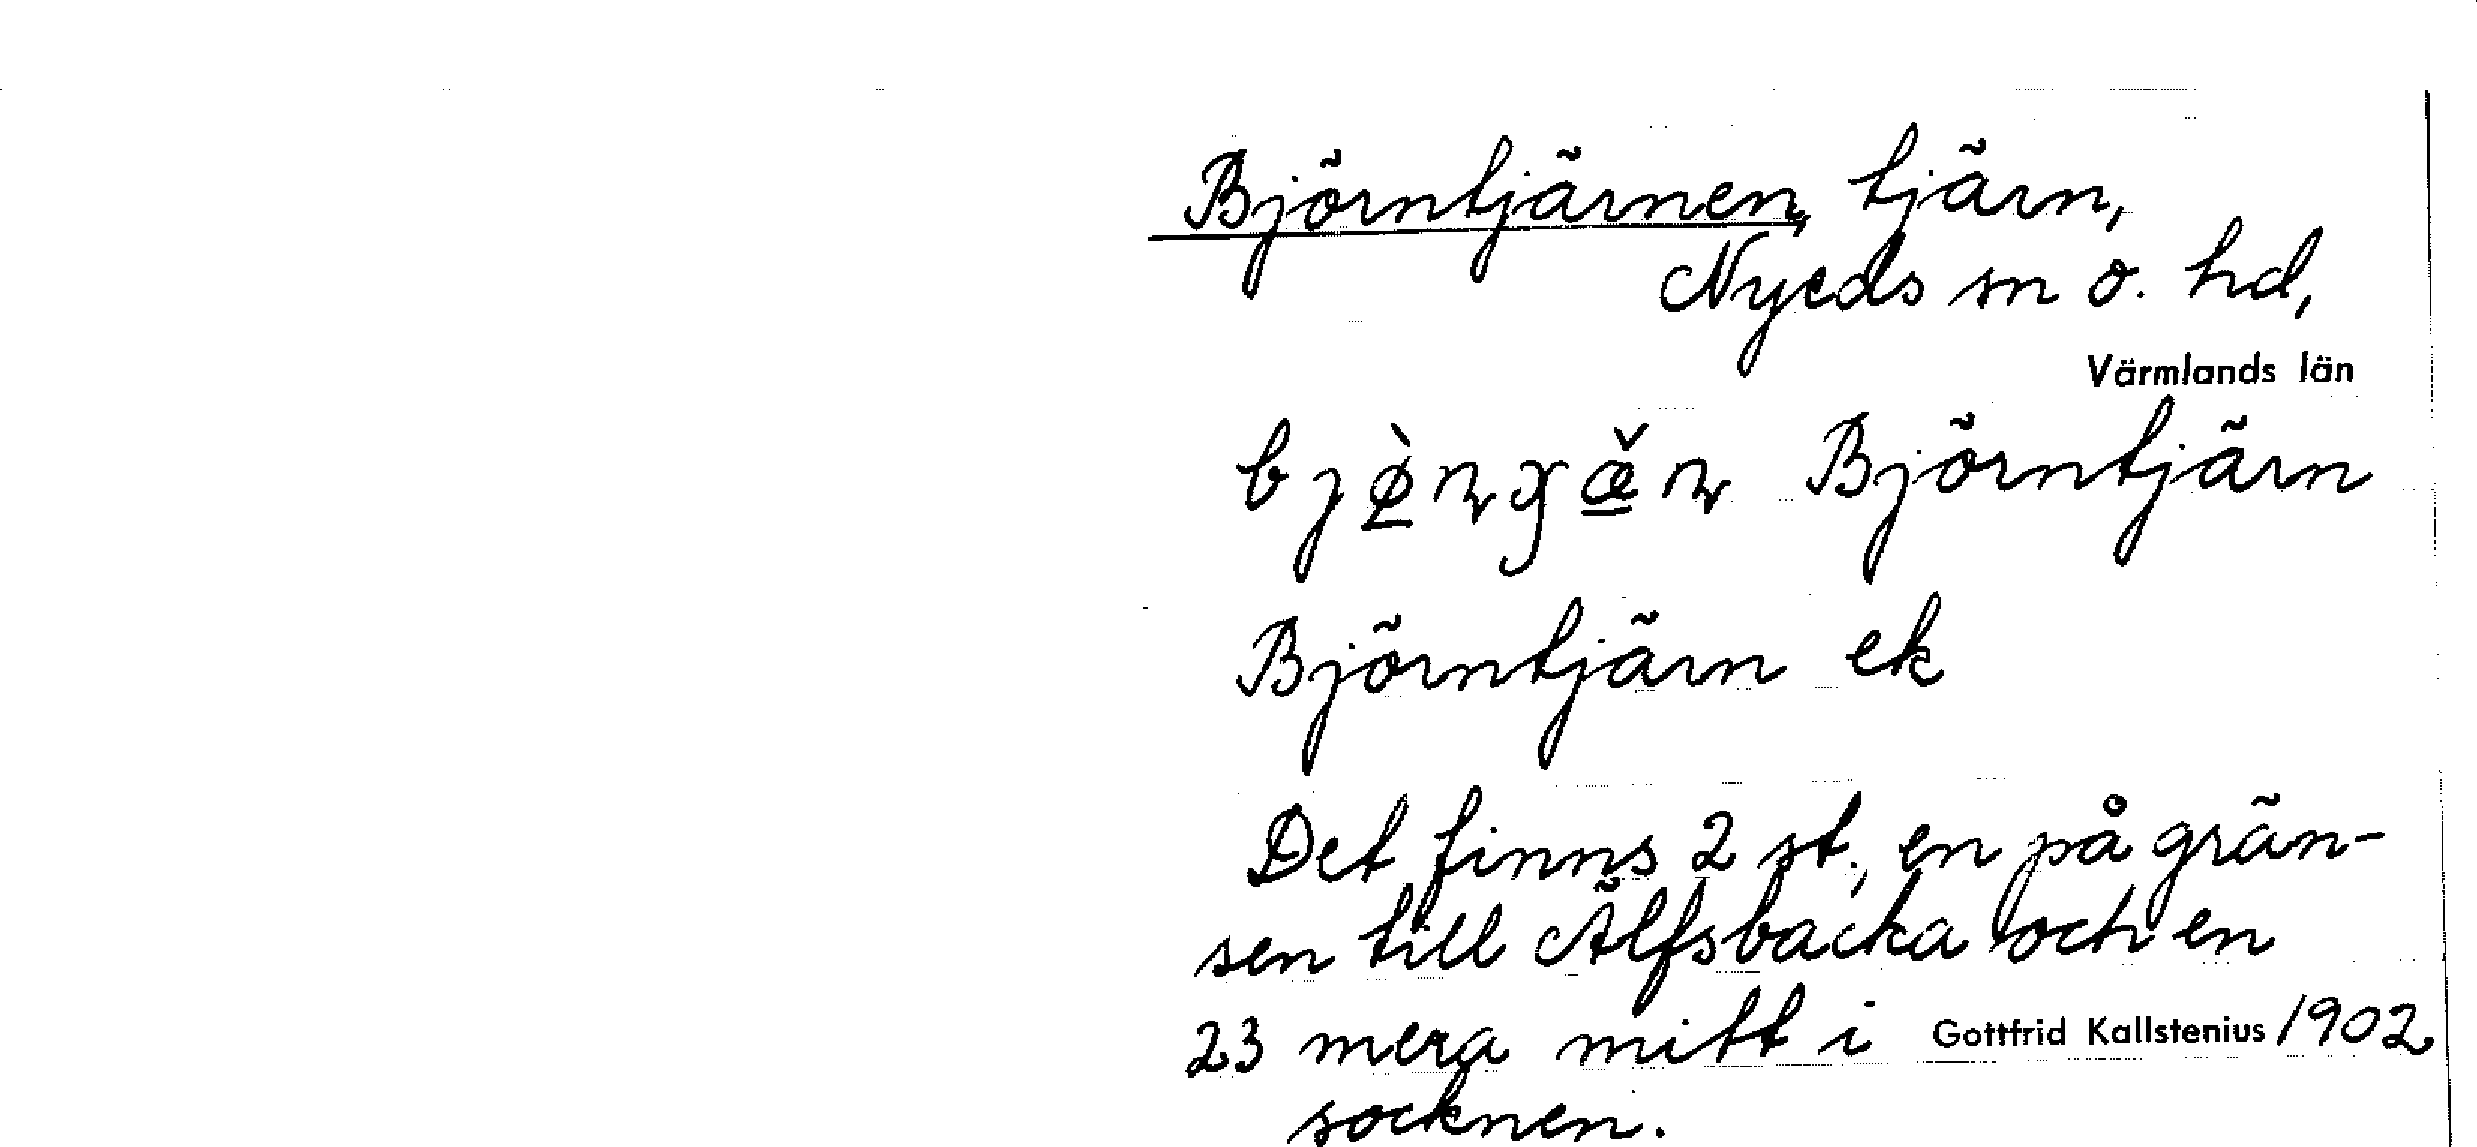 Björntjärnen, tjärn,
Nyeds sn o. hd,
Värmlands län
Björntjärn
Björntjärn ek
Det finns 2 st., en på grän-
sen till Älfsbacka och en
23 mera mitt i Gottfrid Kallstenius 1902
socknen.